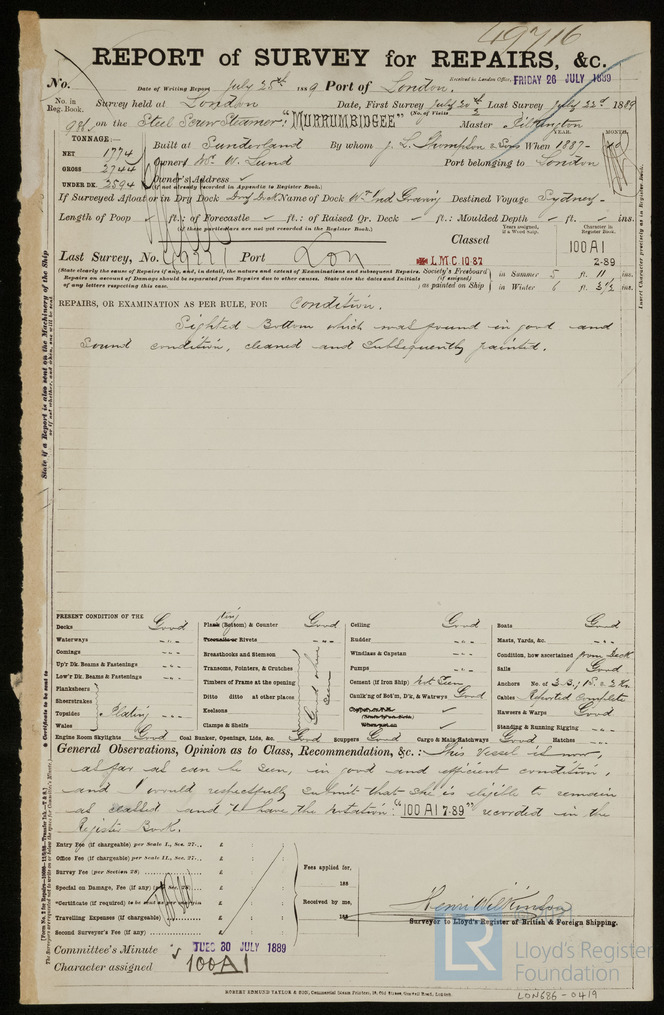 49716
REPORT of SURVEY for REPAIRS, &c.
No. Date of Writing Report July 25th 1889 Port of London. Received in London Office, FRIDAY 26 JULY 1889
No. in Reg. Book. Survey held at London Date, First Survey July 20th Last Survey July 22d 1889
(No. of Visits 2)
on the Steel Screw Steamer "MURRUMBIDGEE" Master Pilkington
TONNAGE:— YEAR. MONTH.
NET 1774 Built at Sunderland By whom J. L. Thompson & Sons When 1887- 10
GROSS 2744 Owners W. Lund Port belonging to London
UNDER DK. 2594 Owner's Address ✓
(if not already recorded in Appendix to Register Book.)
If Surveyed Afloat or in Dry Dock Dry Dock Name of Dock Destined Voyage Sydney-
Length of Poop ✓ ft.; of Forecastle ✓ ft.: of Raised Qr. Deck ✓ ft.: Moulded Depth ✓ ft. ✓ ins.
(if these particulars are not yet recorded in the Register Book.)
Years assigned, if a Wood Ship. Character in Register Book.
Classed 100 A1
Last Survey, No. Port Lon L.M.C. 10.87 2-89
(State clearly the cause of Repairs if any, and, in detail, the nature and extent of Examinations and subsequent Repairs. Repairs on account of Damage should be separated from Repairs due to other causes. State also the dates and Initials of any letters respecting this case.
Society's Freeboard (if assigned) as painted on Ship in Summer 5 ft. 11 ins.
in Winter 6 ft. 3½ ins.
REPAIRS, OR EXAMINATION AS PER RULE, FOR Condition.
Sighted Bottom which was found in good and
sound condition, cleaned and subsequently painted.
State if a Report is also sent on the Machinery of the Ship
Insert Character precisely as in Register Book.
PRESENT CONDITION OF THE
Decks Good Plating (Bottom) & Counter Good Ceiling Good Boats Good
Waterways Treenails or Rivets Rudder Masts, Yards, &c.
Comings Breasthooks and Stemson Windlass & Capstan Condition, how ascertained from Deck
Up'r Dk. Beams & Fastenings Transoms, Pointers, & Crutches Pumps Sails Good
Low'r Dk. Beams & Fastenings Timbers of Frame at the opening Cement (if Iron Ship) Not Seen Anchors No. of
Planksheers Ditto ditto at other places Caulk'ng of Bot'm, D'k, & Watrwys Good Cables Reported Complete
Sheerstrakes Keelsons Hawsers & Warps Good
Topsides Plating Clamps & Shelfs Standing & Running Rigging
Wales
Engine Room Skylights Good Coal Bunker, Openings, Lids, &c. Good Scuppers Good Cargo & Main Hatchways Good Hatches
General Observations, Opinion as to Class, Recommendation, &c.:— This Vessel is now,
as far as can be seen, in good and efficient condition,
and I would respectfully submit that she is eligible to remain
as classed and to have the Notation "100 A1 7-89" recorded in the
Register Book.
Entry Fee (if chargeable) per Scale I., Sec. 27... £ : :
Office Fee (if chargeable) per Scale II., Sec. 27... £ : : Fees applied for,
Survey Fee (per Section 28) £ : : 188
Special on Damage, Fee (if any) (per Sec. 28) £ : : Received by me,
*Certificate (if required) £ : : 188
Travelling Expenses (if chargeable) £ : :
Second Surveyor's Fee (if any) £ : :
Henri Wilkinson
Surveyor to Lloyd's Register of British & Foreign Shipping.
Committee's Minute TUES 30 JULY 1889
Character assigned 100A1
LR Lloyd's Register Foundation
ROBERT EDMUND TAYLOR & SON, Commercial Steam Printers, 19, Old Street, Goswell Road, London
LON686-0419